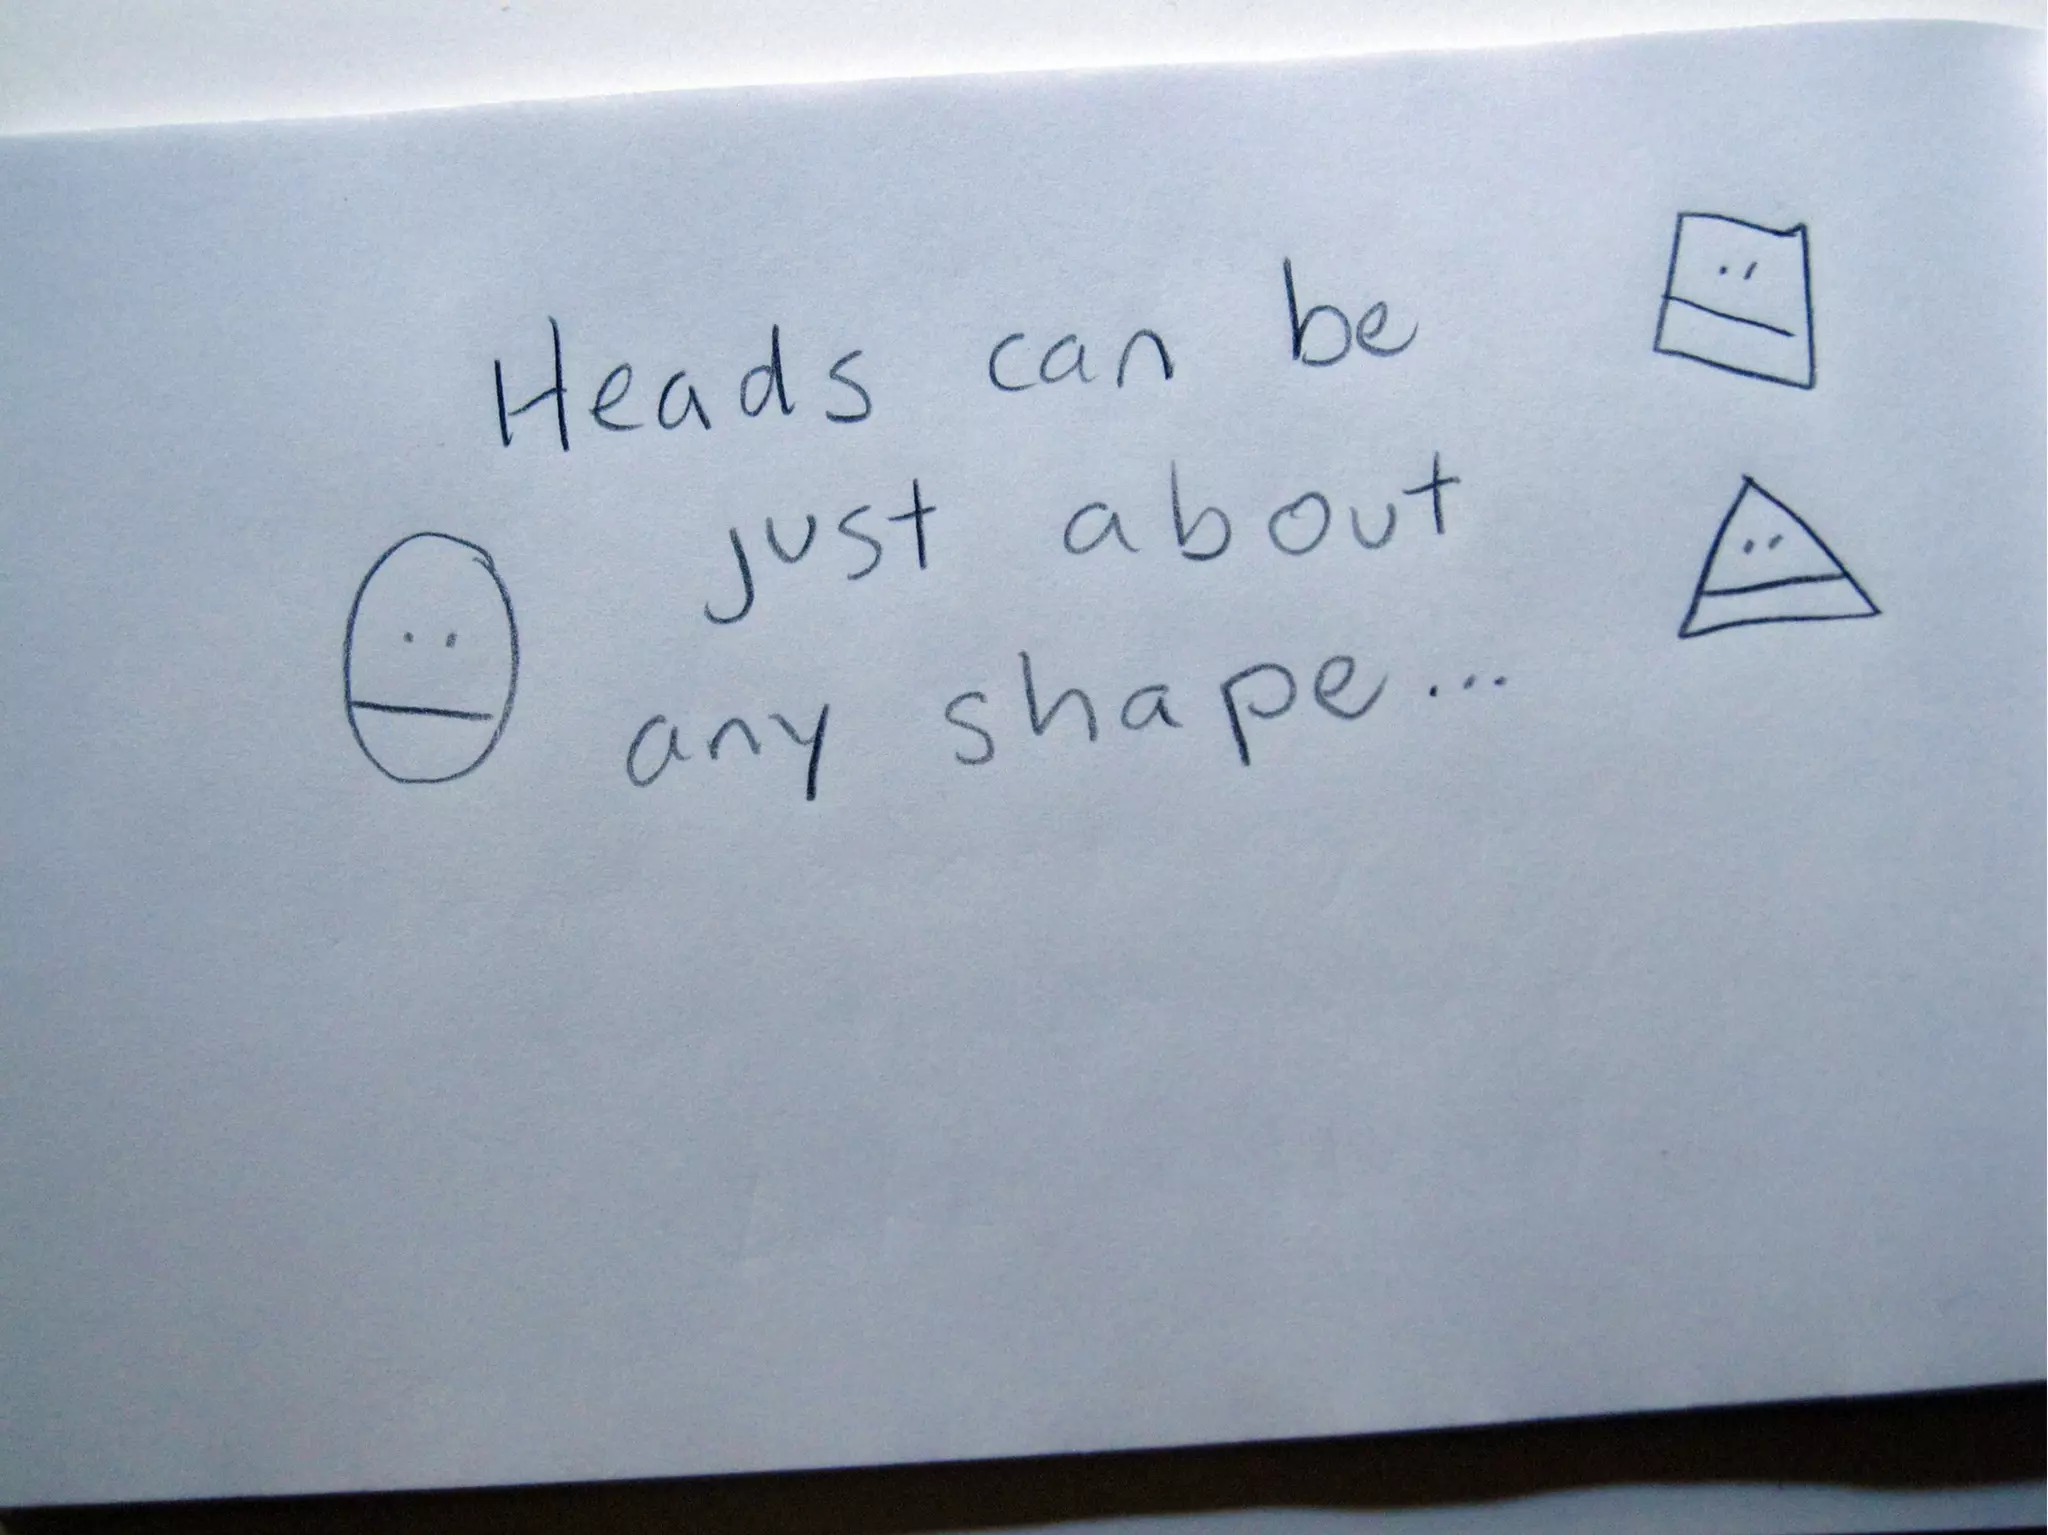 Heads can be
just about
any shape...